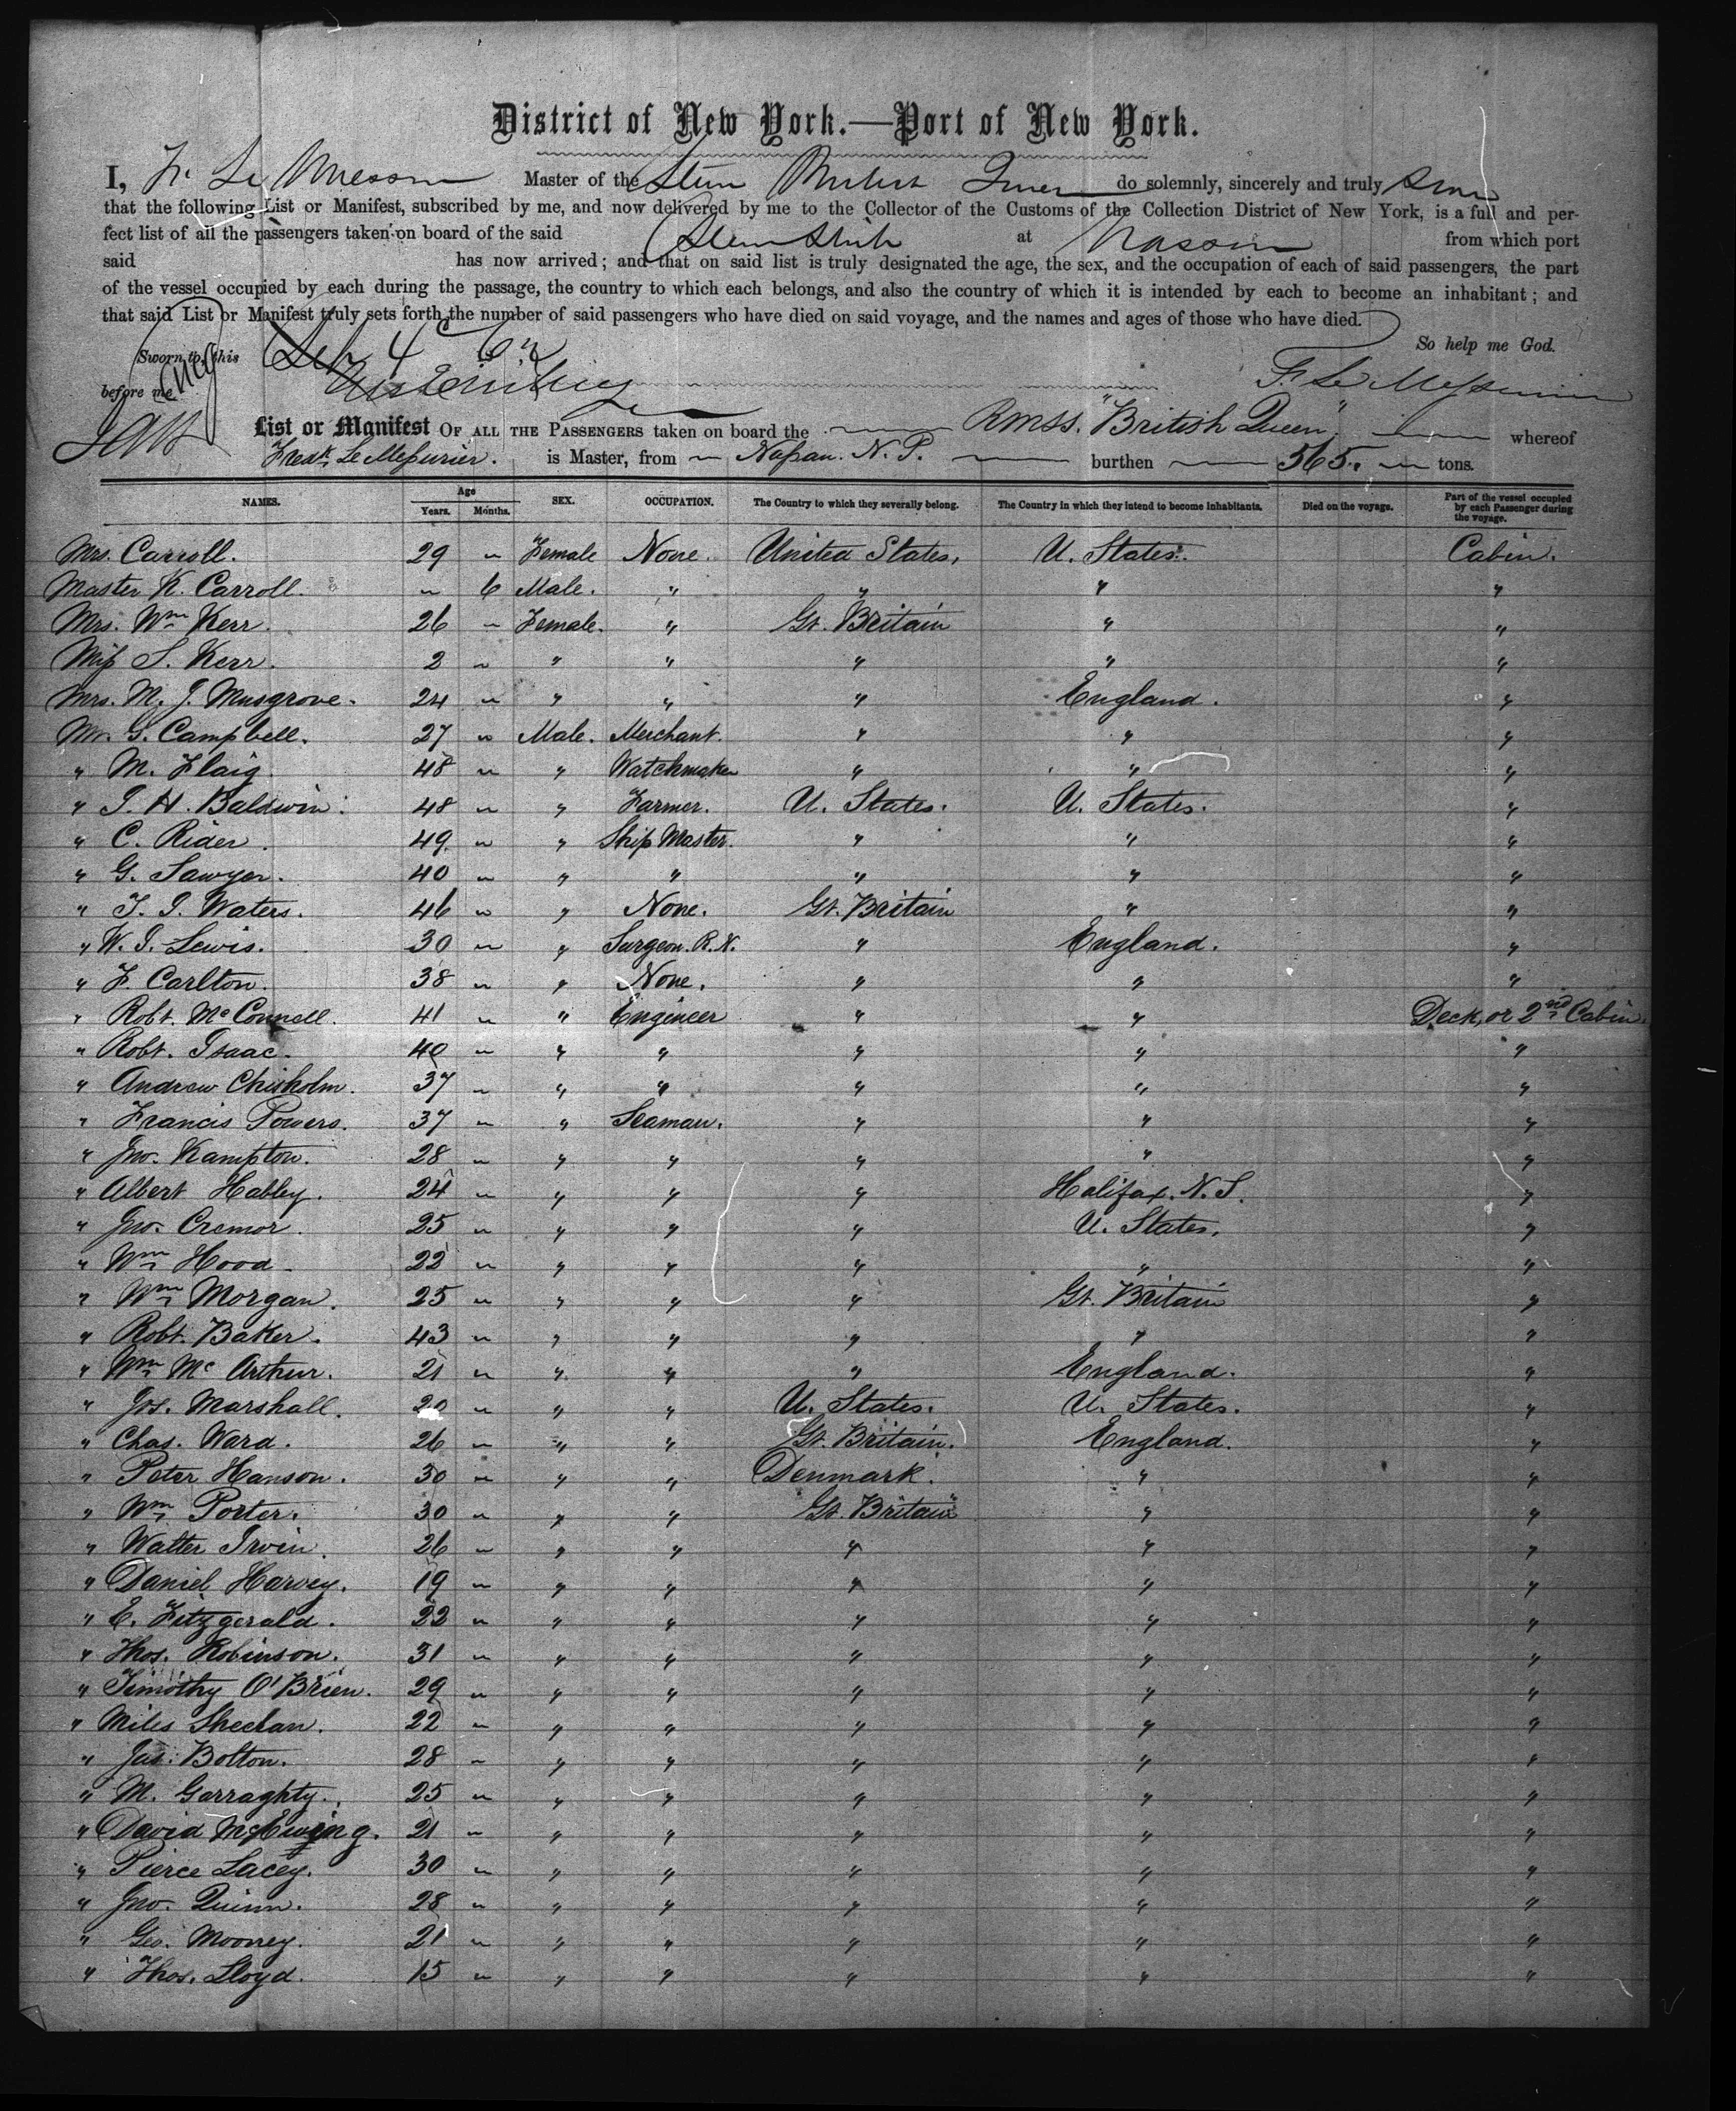 District of New York.—Port of New York.
I, Master of the Steam do solemnly, sincerely and truly
that the following List or Manifest, subscribed by me, and now delivered by me to the Collector of the Customs of the Collection District of New York, is a full and per-
fect list of all the passengers taken on board of the said Steam Ship at Nassau from which port
said has now arrived; and that on said list is truly designated the age, the sex, and the occupation of each of said passengers, the part
of the vessel occupied by each during the passage, the country to which each belongs, and also the country of which it is intended by each to become an inhabitant; and
that said List or Manifest truly sets forth the number of said passengers who have died on said voyage, and the names and ages of those who have died.
So help me God.
Sworn to, this 4
before me
List or Manifest OF ALL THE PASSENGERS taken on board the RMSS. "British Queen" whereof
Fredk. Le Mesurier. is Master, from Nassau. N. P. burthen 565. tons.
NAMES. Age Years. Months. SEX. OCCUPATION. The Country to which they severally belong. The Country in which they intend to become inhabitants. Died on the voyage. Part of the vessel occupied by each Passenger during the voyage.
Mrs. Carroll. 29 " Female None. United States. U. States. Cabin.
Master K. Carroll. " 6 Male. " " " "
Mrs. Wm Kerr. 26 " Female. " Gt. Britain " "
Miss S. Kerr. 2 " " " " " "
Mrs. M. J. Musgrove. 24 " " " " England. "
Mr. G. Campbell. 27 " Male. Merchant. " " "
" M. Flaig. 48 " " Watchmaker " " "
" J. H. Baldwin. 48 " " Farmer. U. States. U. States. "
" C. Rider. 49 " " Ship Master. " " "
" G. Sawyer. 40 " " " " " "
" T. J. Waters. 46 " " None. Gt. Britain " "
" W. J. Lewis. 30 " " Surgeon. R.N. " England. "
" F. Carlton. 38 " " None. " " "
" Robt. McConnell. 41 " " Engineer " " Deck, or 2nd Cabin.
" Robt. Isaac. 40 " " " " " "
" Andrew Chisholm. 37 " " " " " "
" Francis Powers. 37 " " Seaman. " " "
" Jno. Kampton. 28 " " " " " "
" Albert Habley. 24 " " " " Halifax. N.S. "
" Jno. Cremor. 25 " " " " U. States. "
" Wm Hood. 22 " " " " " "
" Wm Morgan. 25 " " " " Gt. Britain "
" Robt. Baker. 43 " " " " " "
" Wm McArthur. 21 " " " " England. "
" Jos. Marshall. 20 " " " U. States. U. States. "
" Chas. Ward. 26 " " " Gt. Britain. England. "
" Peter Hanson. 30 " " " Denmark. " "
" Wm Porter. 30 " " " Gt. Britain " "
" Walter Irvin. 26 " " " " " "
" Daniel Harvey. 19 " " " " " "
" E. Fitzgerald. 22 " " " " " "
" Thos. Robinson. 31 " " " " " "
" Timothy O'Brien. 29 " " " " " "
" Miles Sheehan. 22 " " " " " "
" Jas. Bolton. 28 " " " " " "
" M. Garraghty. 25 " " " " " "
" David McEwing. 21 " " " " " "
" Pierce Lacey. 30 " " " " " "
" Jno. Quinn. 28 " " " " " "
" Geo. Mooney. 21 " " " " " "
" Thos. Lloyd. 15 " " " " " "